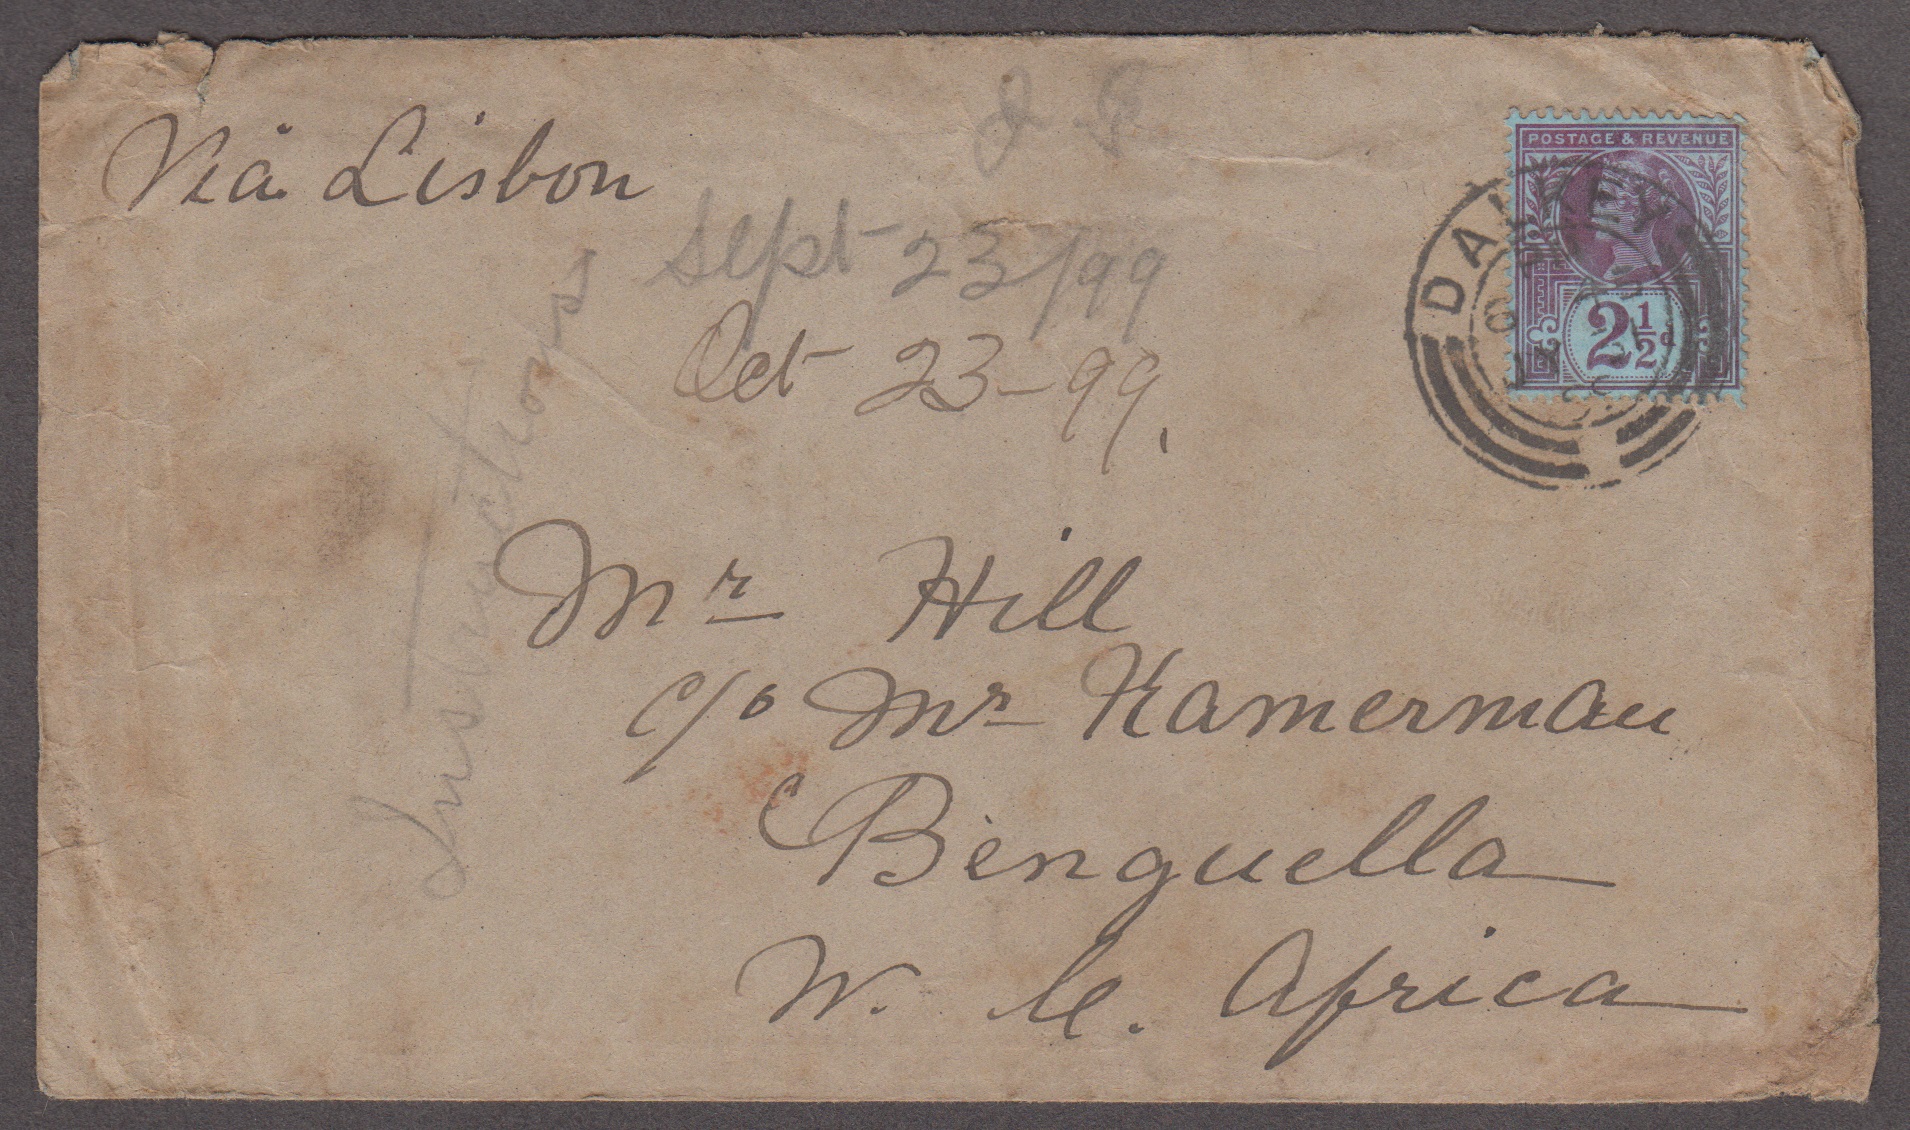 Via Lisbon
Sept 23/99
Oct 23-99.
Instructions
POSTAGE & REVENUE
2½d
Mr Hill
c/o Mr Kamerman
Benguella
W. C. Africa